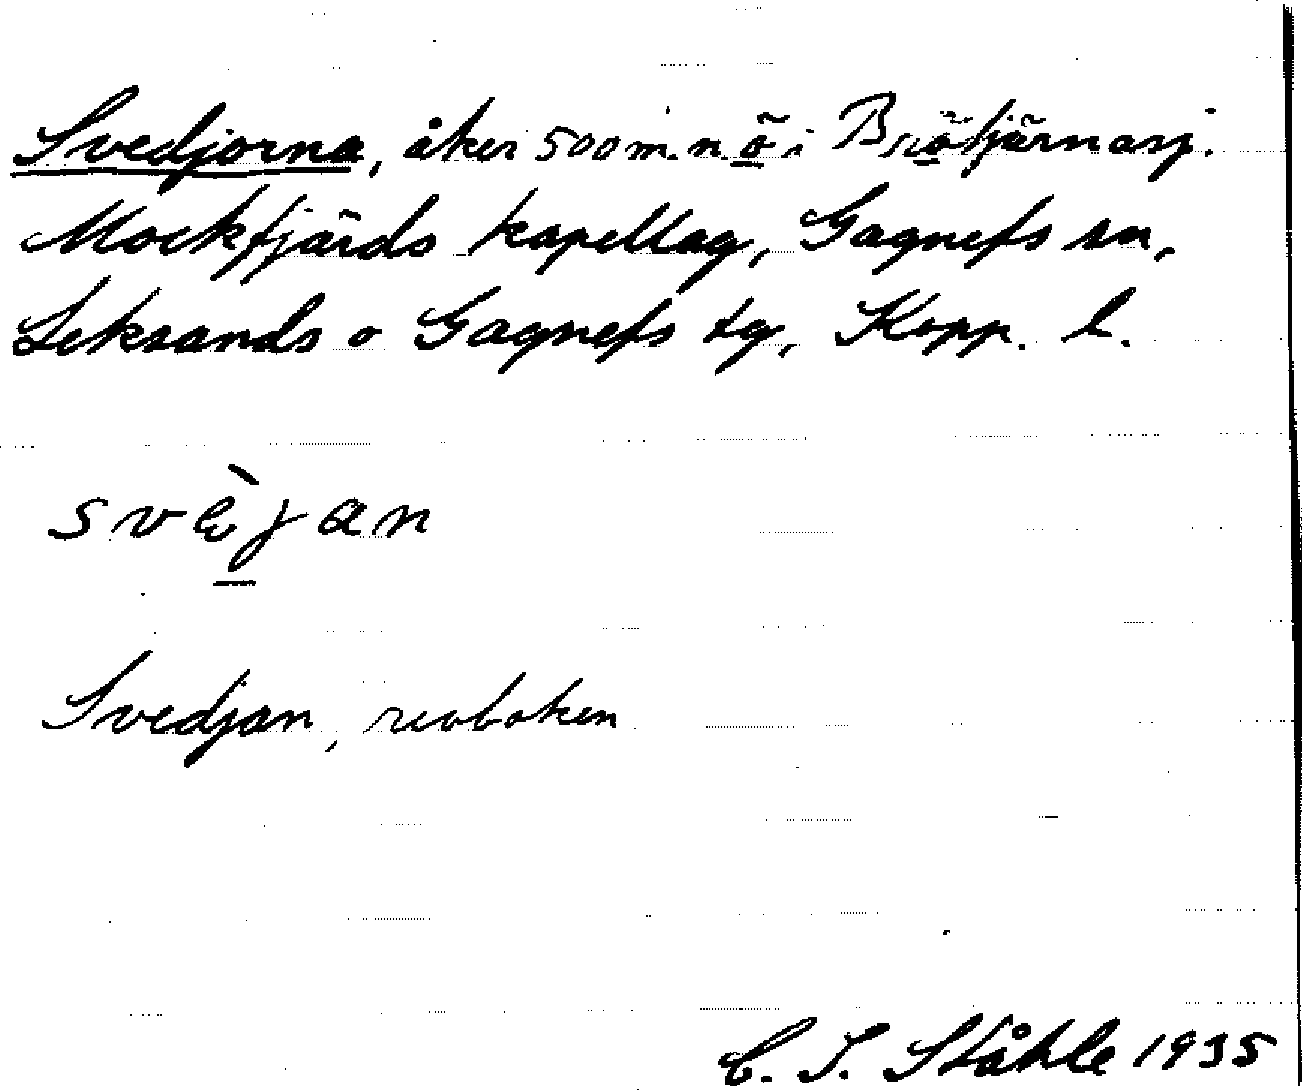 Svedjorna, åker 500 m. n ö i Brötjärnasj.
Mockfjärds kapellag, Gagnefs sn,
Leksands o Gagnefs tg, Kopp. l.
svèjan
Svedjan, revboken
C. I. Ståhle 1935